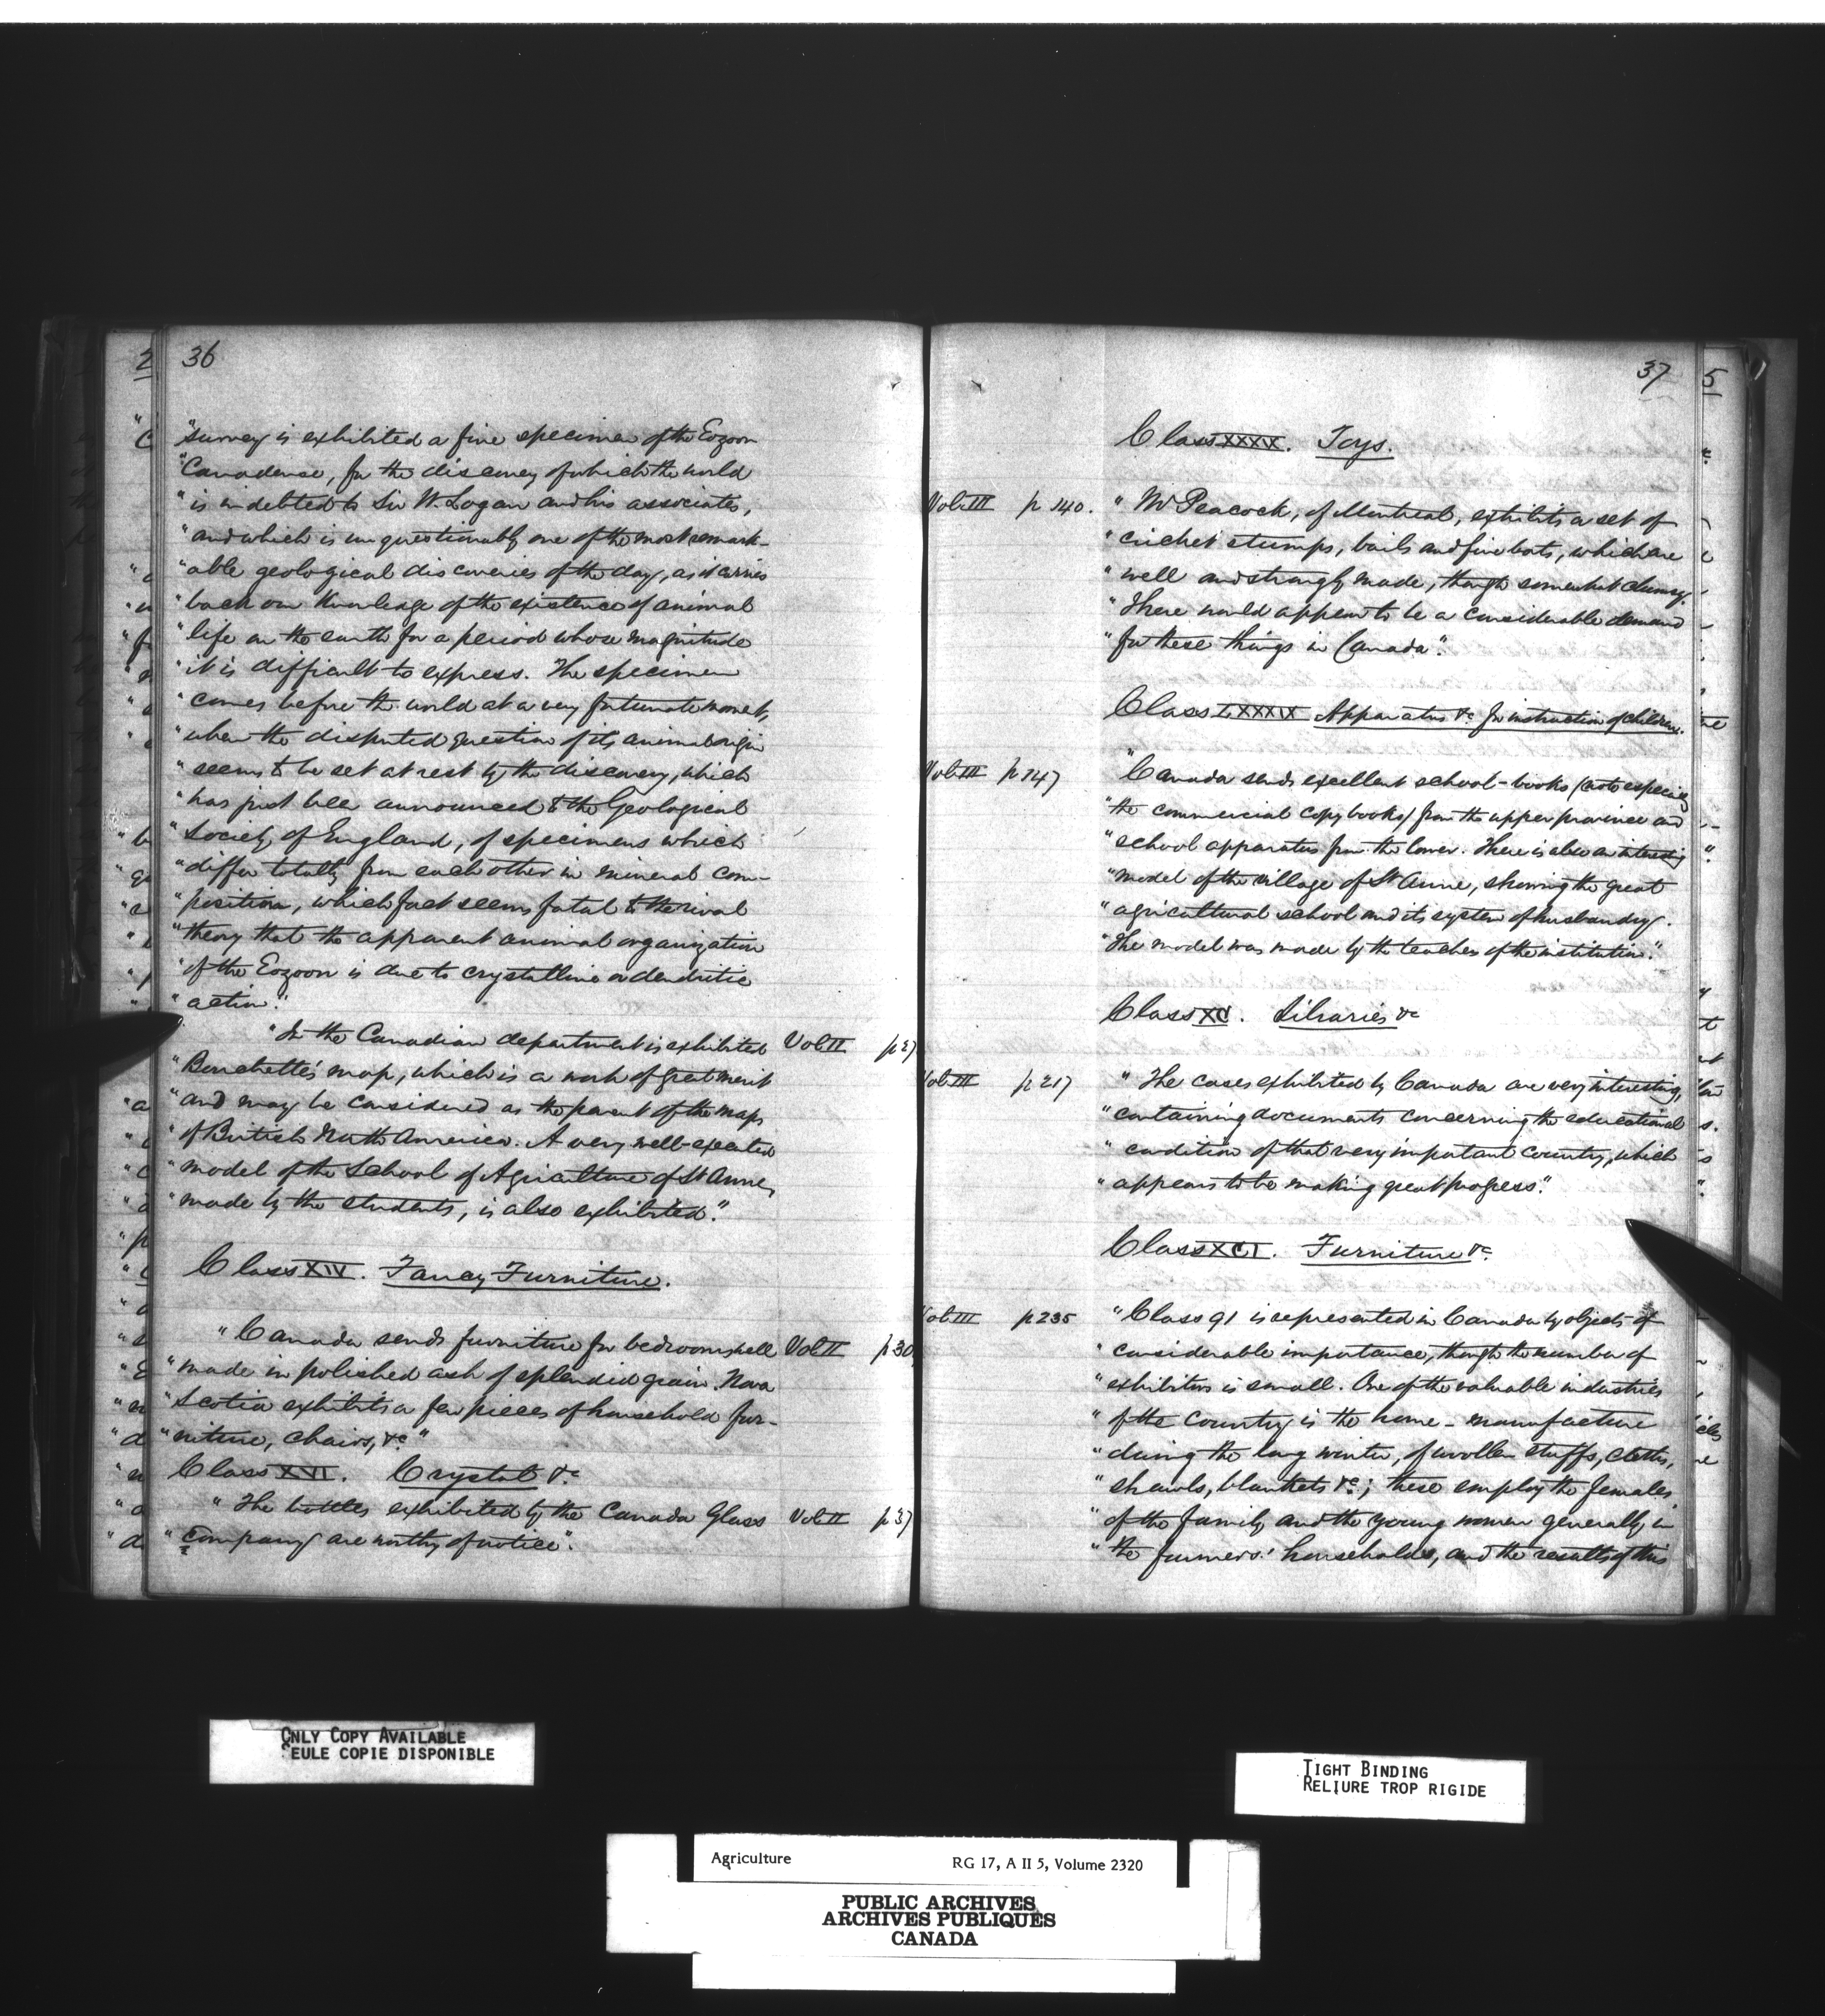 36
"survey is exhibited a fine specimen of the Eozoon
"Canadense, for the discovery of which the world
"is indebted to Sir W. Logan and his associates,
"and which is unquestionably one of the most remark-
"able geological discoveries of the day, as it carries
"back our knowledge of the existence of animal
"life on the earth for a period whose magnitude
"it is difficult to express. The specimen
"comes before the world at a very fortunate moment,
"when the disputed question of its animal origin
"seems to be set at rest by the discovery, which
"has just been announced to the Geological
"Society of England, of specimens which
"differ totally from each other in mineral com-
"position, which fact seems fatal to the rival
"theory that the apparent animal organization
"of the Eozoon is due to crystalline or dendritic
"action."
"In the Canadian department is exhibited Vol II
"Bouchette's map, which is a work of great merit
"and may be considered as the parent of the maps
"of British North America. A very well-executed
"model of the School of Agriculture of St Anne,
"made by the students, is also exhibited."
Class XIV. Fancy Furniture.
"Canada sends furniture for bedrooms, well Vol II p 30
"made in polished ash of splendid grain. Nova
"Scotia exhibits a few pieces of household fur-
"niture, chairs, &c"
Class XVI. Crystal &c
"The bottles exhibited by the Canada Glass Vol II p 37
"Company are worthy of notice."
37
Class XXXIX. Toys.
Vol III p 140. "Mr Peacock, of Montreal, exhibits a set of
"cricket stumps, bails and five bats, which are
"well and strongly made, though somewhat clumsy.
"There would appear to be a considerable demand
"for these things in Canada".
Class LXXXIX Apparatus &c for instruction of children.
Vol III p 147 "Canada sends excellent school-books (note especially
"the commercial copy books) from the upper province and
"school apparatus from the lower. There is also an interesting
"model of the village of St Anne, showing the great
"agricultural school and its system of husbandry.
"The model was made by the teacher of the institution."
Class XC. Libraries &c
Vol III p 217 "The cases exhibited by Canada are very interesting,
"containing documents concerning the educational
"condition of that very important country, which
"appears to be making great progress."
Class XCI. Furniture &c
Vol III p 235 "Class 91 is represented in Canada by objects of
"considerable importance, though the number of
"exhibitors is small. One of the valuable industries
"of the country is the home-manufacture
"during the long winter, of woollen stuffs, cloths,
"shawls, blankets &c; these employ the females
"of the family and the young women generally in
"the farmers' households, and the results of this
ONLY COPY AVAILABLE
SEULE COPIE DISPONIBLE
TIGHT BINDING
RELIURE TROP RIGIDE
Agriculture RG 17, A II 5, Volume 2320
PUBLIC ARCHIVES
ARCHIVES PUBLIQUES
CANADA